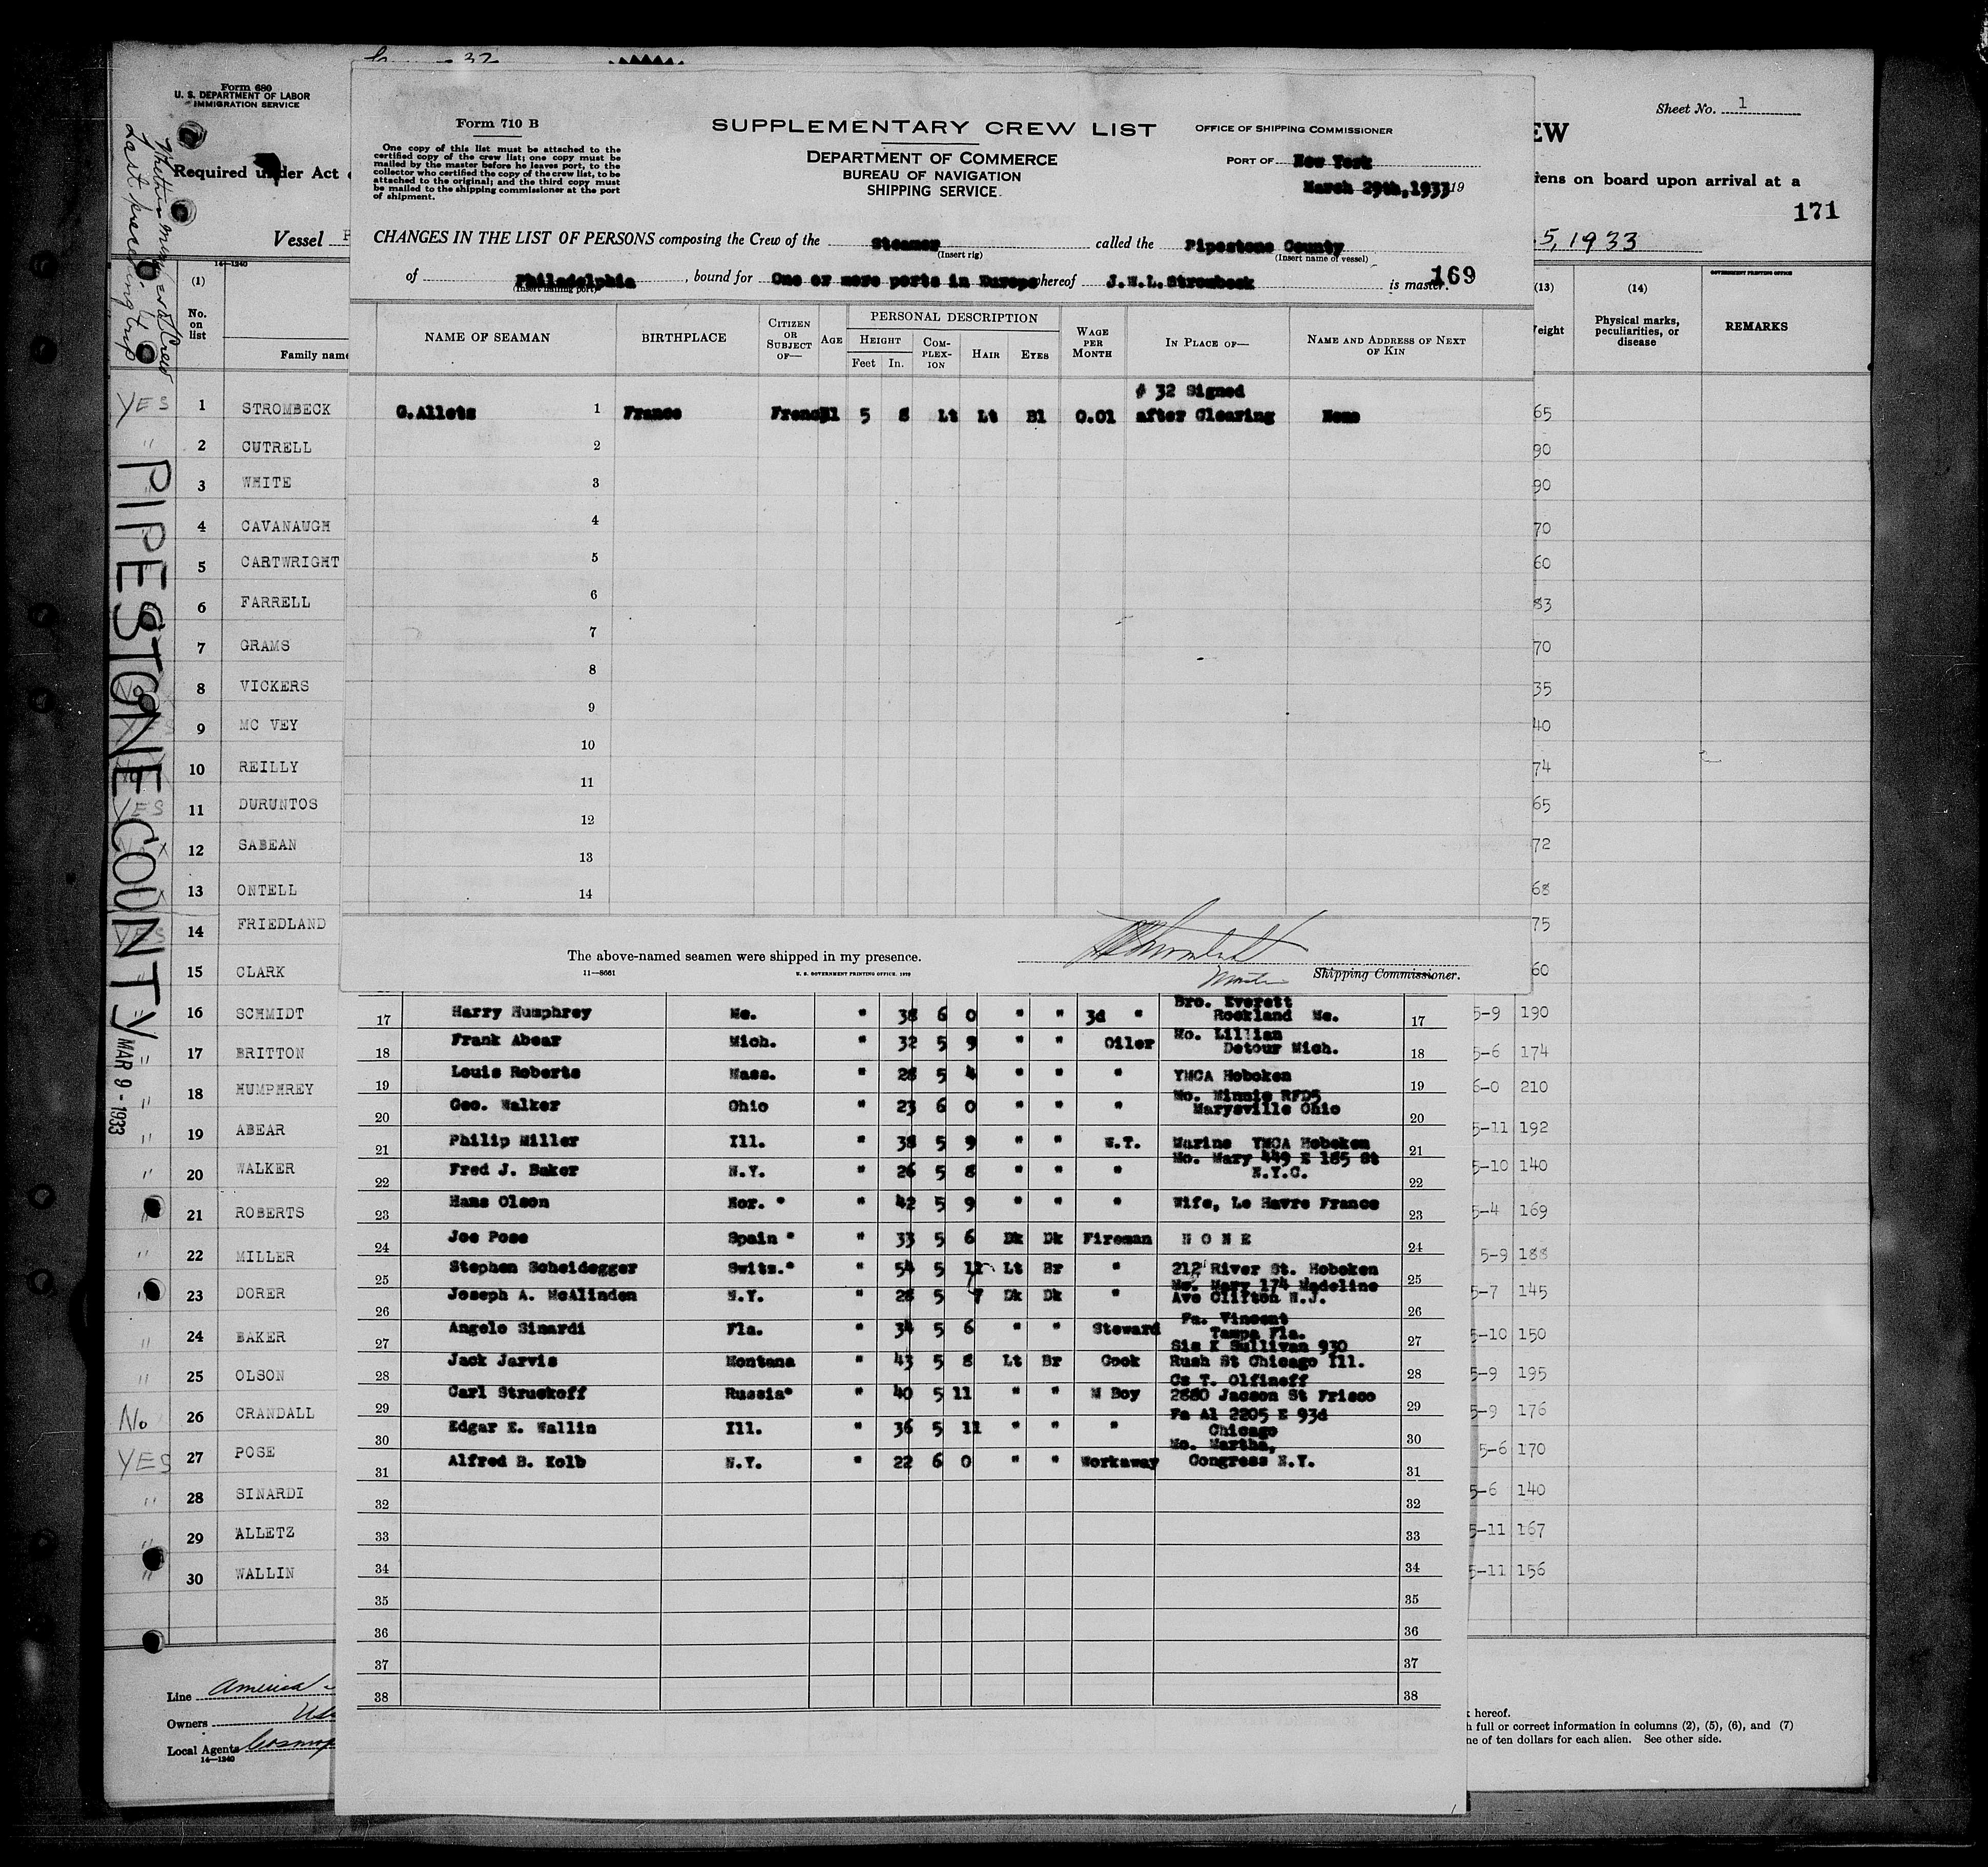 Form 680
U. S. DEPARTMENT OF LABOR
IMMIGRATION SERVICE
Required under Act
Vessel
14—1240
(1)
No. on list
Family name
Whether member of Crew Last preceding trip
PIPESTONE COUNTY
MAR 9 - 1933
YES 1 STROMBECK
" 2 CUTRELL
" 3 WHITE
4 CAVANAUGH
5 CARTWRIGHT
6 FARRELL
7 GRAMS
8 VICKERS
9 MC VEY
10 REILLY
YES 11 DURUNTOS
12 SABEAN
13 ONTELL
YES 14 FRIEDLAND
15 CLARK
16 SCHMIDT
" 17 BRITTON
" 18 HUMPHREY
" 19 ABEAR
" 20 WALKER
" 21 ROBERTS
" 22 MILLER
23 DORER
" 24 BAKER
" 25 OLSON
No 26 CRANDALL
YES 27 POSE
" 28 SINARDI
" 29 ALLETZ
" 30 WALLIN
Line America
Owners
Local Agents Cosmop
14—1240
32
Form 710 B
One copy of this list must be attached to the
certified copy of the crew list; one copy must be
mailed by the master before he leaves port, to the
collector who certified the copy of the crew list, to be
attached to the original; and the third copy must
be mailed to the shipping commissioner at the port
of shipment.
SUPPLEMENTARY CREW LIST
DEPARTMENT OF COMMERCE
BUREAU OF NAVIGATION
SHIPPING SERVICE.
OFFICE OF SHIPPING COMMISSIONER
PORT OF New York
March 29th,1933 19
CHANGES IN THE LIST OF PERSONS composing the Crew of the Steamer called the Pipestone County
(Insert rig) (Insert name of vessel)
of Philadelphia , bound for One or more ports in Europe whereof J.W.L.Strombeck is master.
(Insert hailing port)
169
NAME OF SEAMAN BIRTHPLACE CITIZEN OR SUBJECT OF— AGE PERSONAL DESCRIPTION WAGE PER MONTH IN PLACE OF— NAME AND ADDRESS OF NEXT OF KIN
HEIGHT COMPLEXION HAIR EYES
Feet In.
# 32 Signed
G.Allets 1 France French 5 8 Lt Lt Bl 0.01 after Clearing None
2
3
4
5
6
7
8
9
10
11
12
13
14
The above-named seamen were shipped in my presence.
Master
Shipping Commissioner.
11—8661 U. S. GOVERNMENT PRINTING OFFICE.
17 Harry Humphrey Me. " 38 6 0 " " 3d " Bro. Everett Rockland Me. 17
18 Frank Abear Mich. " 32 5 9 " " Oiler Mo. Lillian Detour Mich. 18
19 Louis Roberts Mass. " 28 5 4 " " " YMCA Hoboken 19
20 Geo. Walker Ohio " 23 6 0 " " " Mo. Minnie RFD5 Marysville Ohio 20
21 Philip Miller Ill. " 38 5 9 " " W.T. Marine YMCA Hoboken 21
22 Fred J. Baker N.Y. " 26 5 8 " " " Mo. Mary 449 E 185 St N.Y.C. 22
23 Hans Olson Nor. " " 42 5 9 " " " Wife, Le Havre France 23
24 Joe Pose Spain " " 33 5 6 Dk Dk Fireman N O N E 24
25 Stephen Scheidegger Switz." " 54 5 11 Lt Br " 212 River St. Hoboken 25
26 Joseph A. McAlinden N.Y. " 28 5 7 Dk Dk " Mo. Mary 174 Madeline Ave Clifton N.J. 26
27 Angelo Sinardi Fla. " 34 5 6 " " Steward Fa. Vincent Tampa Fla. 27
28 Jack Jarvis Montana " 43 5 8 Lt Br Cook Sis K Sullivan 930 Rush St Chicago Ill. 28
29 Carl Struckoff Russia" " 40 5 11 " " M Boy Cs T. Olfineff 2880 Jacson St Frisco 29
30 Edgar E. Wallin Ill. " 36 5 11 " " " Fa Al 2205 E 93d Chicago 30
31 Alfred B. Kolb N.Y. " 22 6 0 " " Workaway Mo. Martha, Congress N.Y. 31
32 32
33 33
34 34
35 35
36 36
37 37
38 38
Sheet No. 1
EW
iens on board upon arrival at a
171
5, 1933
GOVERNMENT PRINTING OFFICE
(13) (14)
Weight Physical marks, peculiarities, or disease REMARKS
65
90
90
70
60
83
70
35
40
74
65
72
68
75
60
5-9 190
5-6 174
6-0 210
5-11 192
5-10 140
5-4 169
5-9 188
5-7 145
5-10 150
5-9 195
5-9 176
5-6 170
5-6 140
5-11 167
5-11 156
hereof.
h full or correct information in columns (2), (5), (6), and (7)
ne of ten dollars for each alien. See other side.